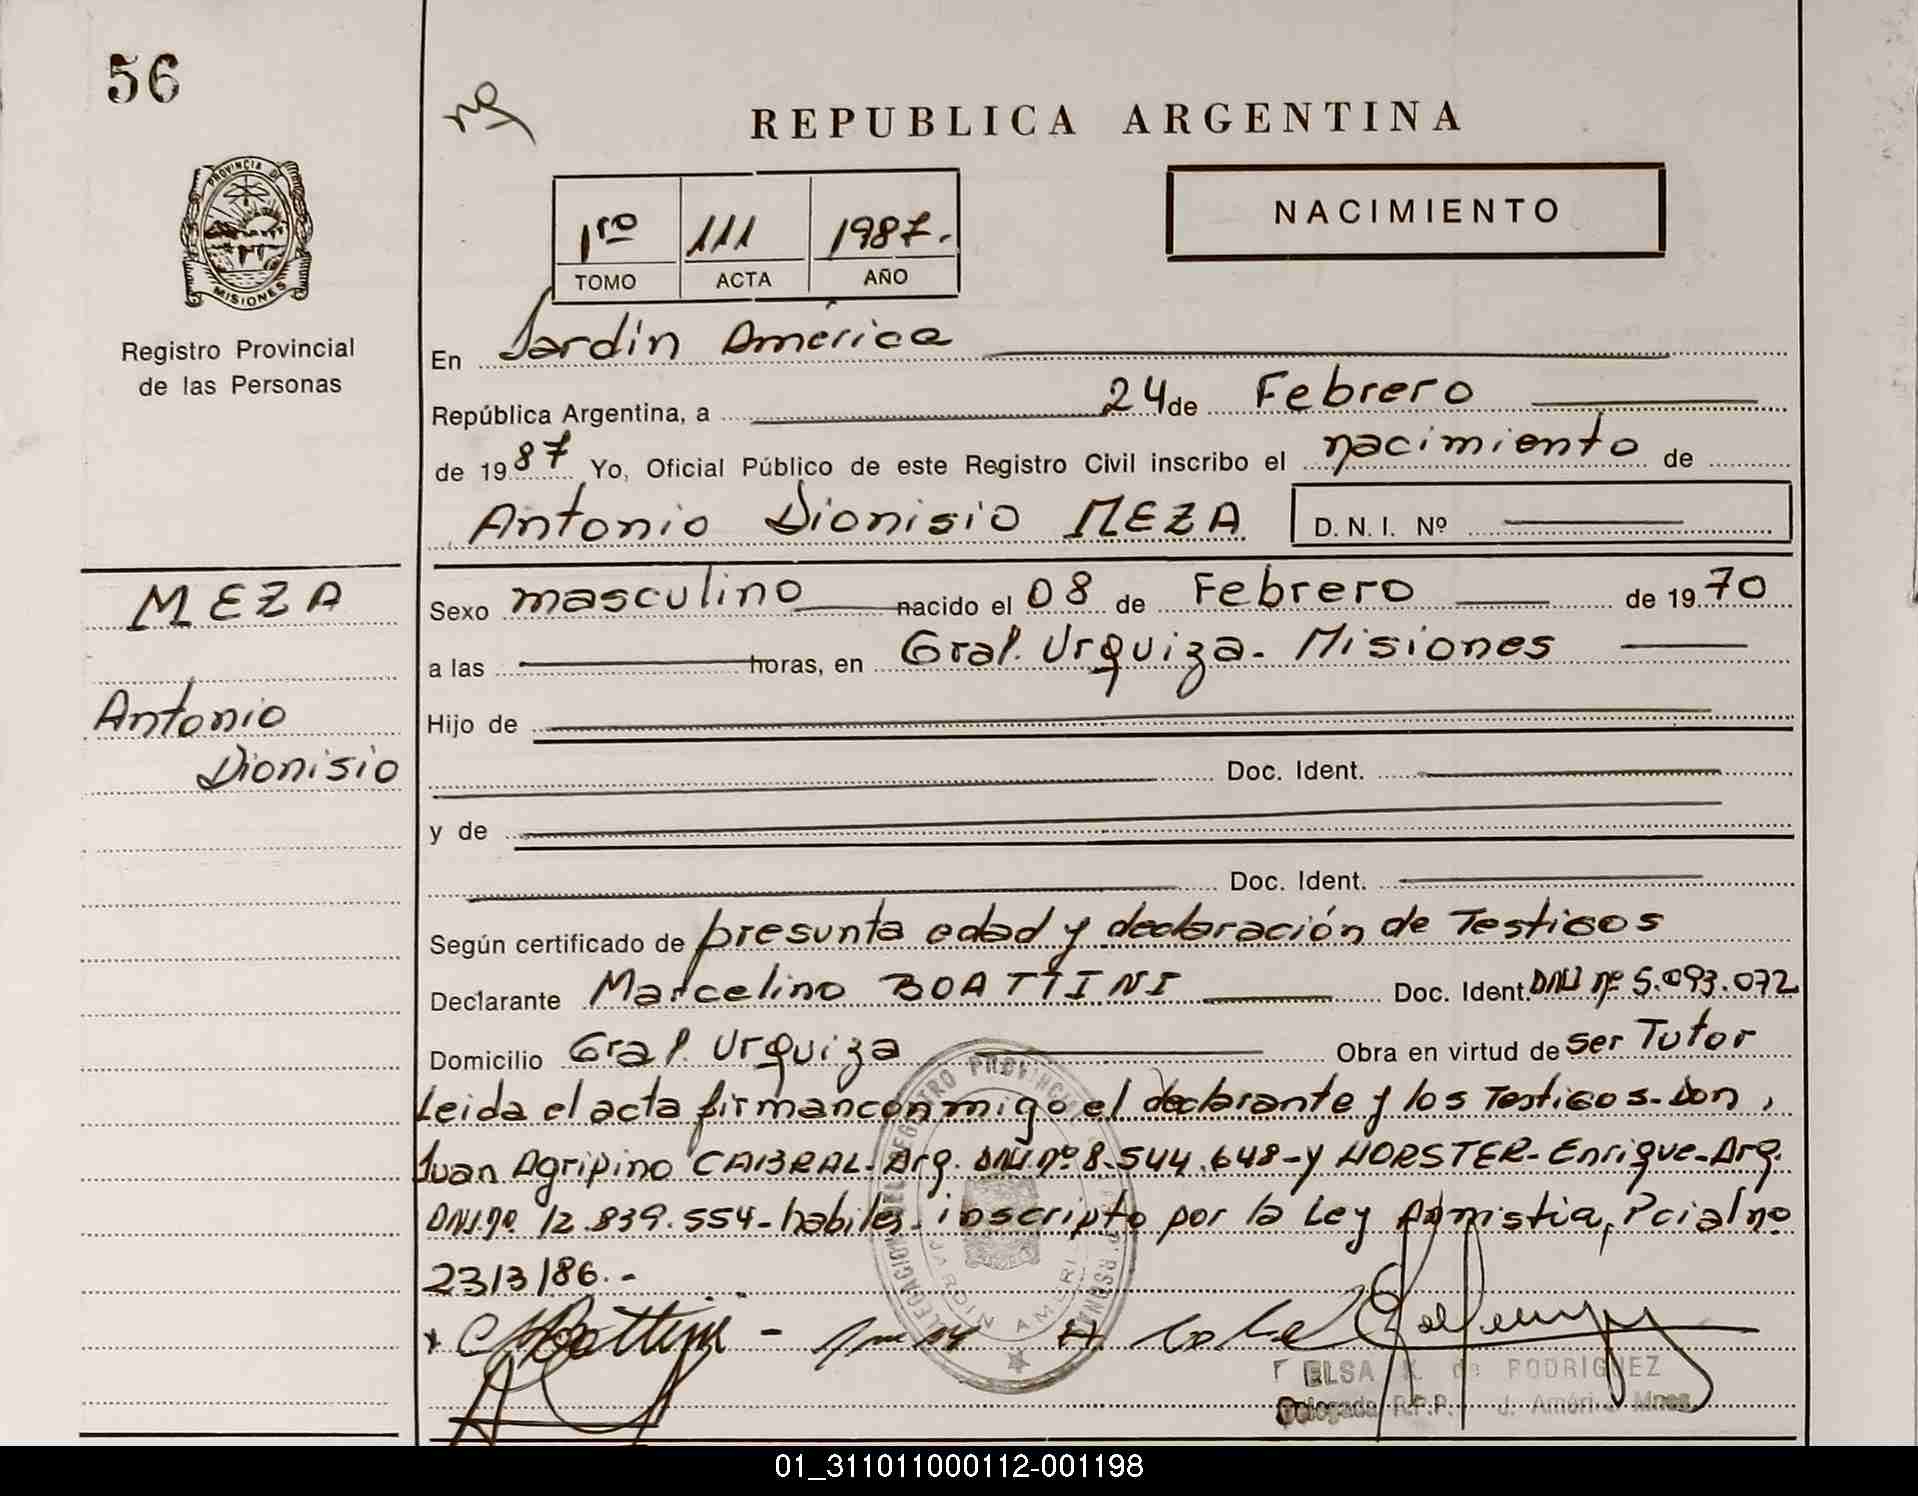 56
REPUBLICA ARGENTINA
PROVINCIA DE
MISIONES
Registro Provincial
de las Personas
1ro 111 1987.
TOMO ACTA AÑO
NACIMIENTO
En Jardín América
República Argentina, a 24 de Febrero
de 1987 Yo, Oficial Público de este Registro Civil inscribo el nacimiento de
Antonio Dionisio MEZA D. N. I. Nº
MEZA
Antonio
Dionisio
Sexo masculino nacido el 08 de Febrero de 1970
a las horas, en Gral. Urquiza. Misiones
Hijo de
Doc. Ident.
y de
Doc. Ident.
Según certificado de presunta edad y declaración de Testigos
Declarante Marcelino BOATTINI Doc. Ident. DNI nº 5.093.072
Domicilio Gral. Urquiza Obra en virtud de ser Tutor
Leida el acta firman conmigo el declarante y los Testigos-Don,
Juan Agripino CABRAL-Arg. DNI.nº 8.544.648-y HORSTER-Enrique-Arg.
DNI.nº 12.839.554-habiles-inscripto por la Ley Amnistia, Pcial no
2313/86.-
REGISTRO PROVINCIAL
JARDIN AMERI
ELSA K. de RODRIGUEZ
Delegada R.P.P. J. Améri Mnes.
01_311011000112-001198